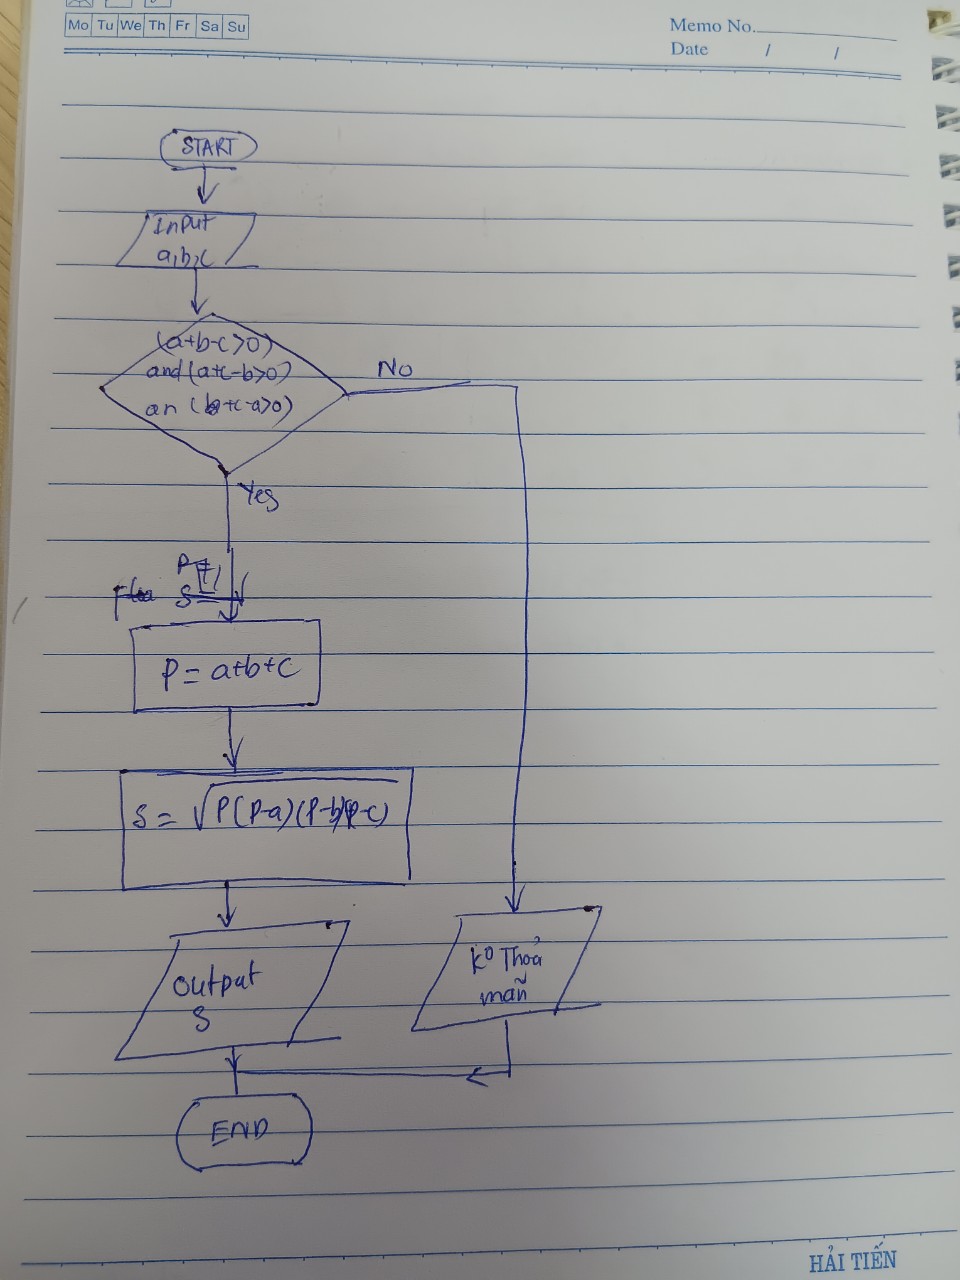 Mo Tu We Th Fr Sa Su
Memo No.
Date / /
START
Input
a,b,c
(a+b-c>0)
and (a+c-b>0)
an (b+c-a>0)
No
Yes
P = a+b+c
S = √P(P-a)(P-b)(P-c)
Output
S
Ko Thoả
mãn
END
HẢI TIẾN